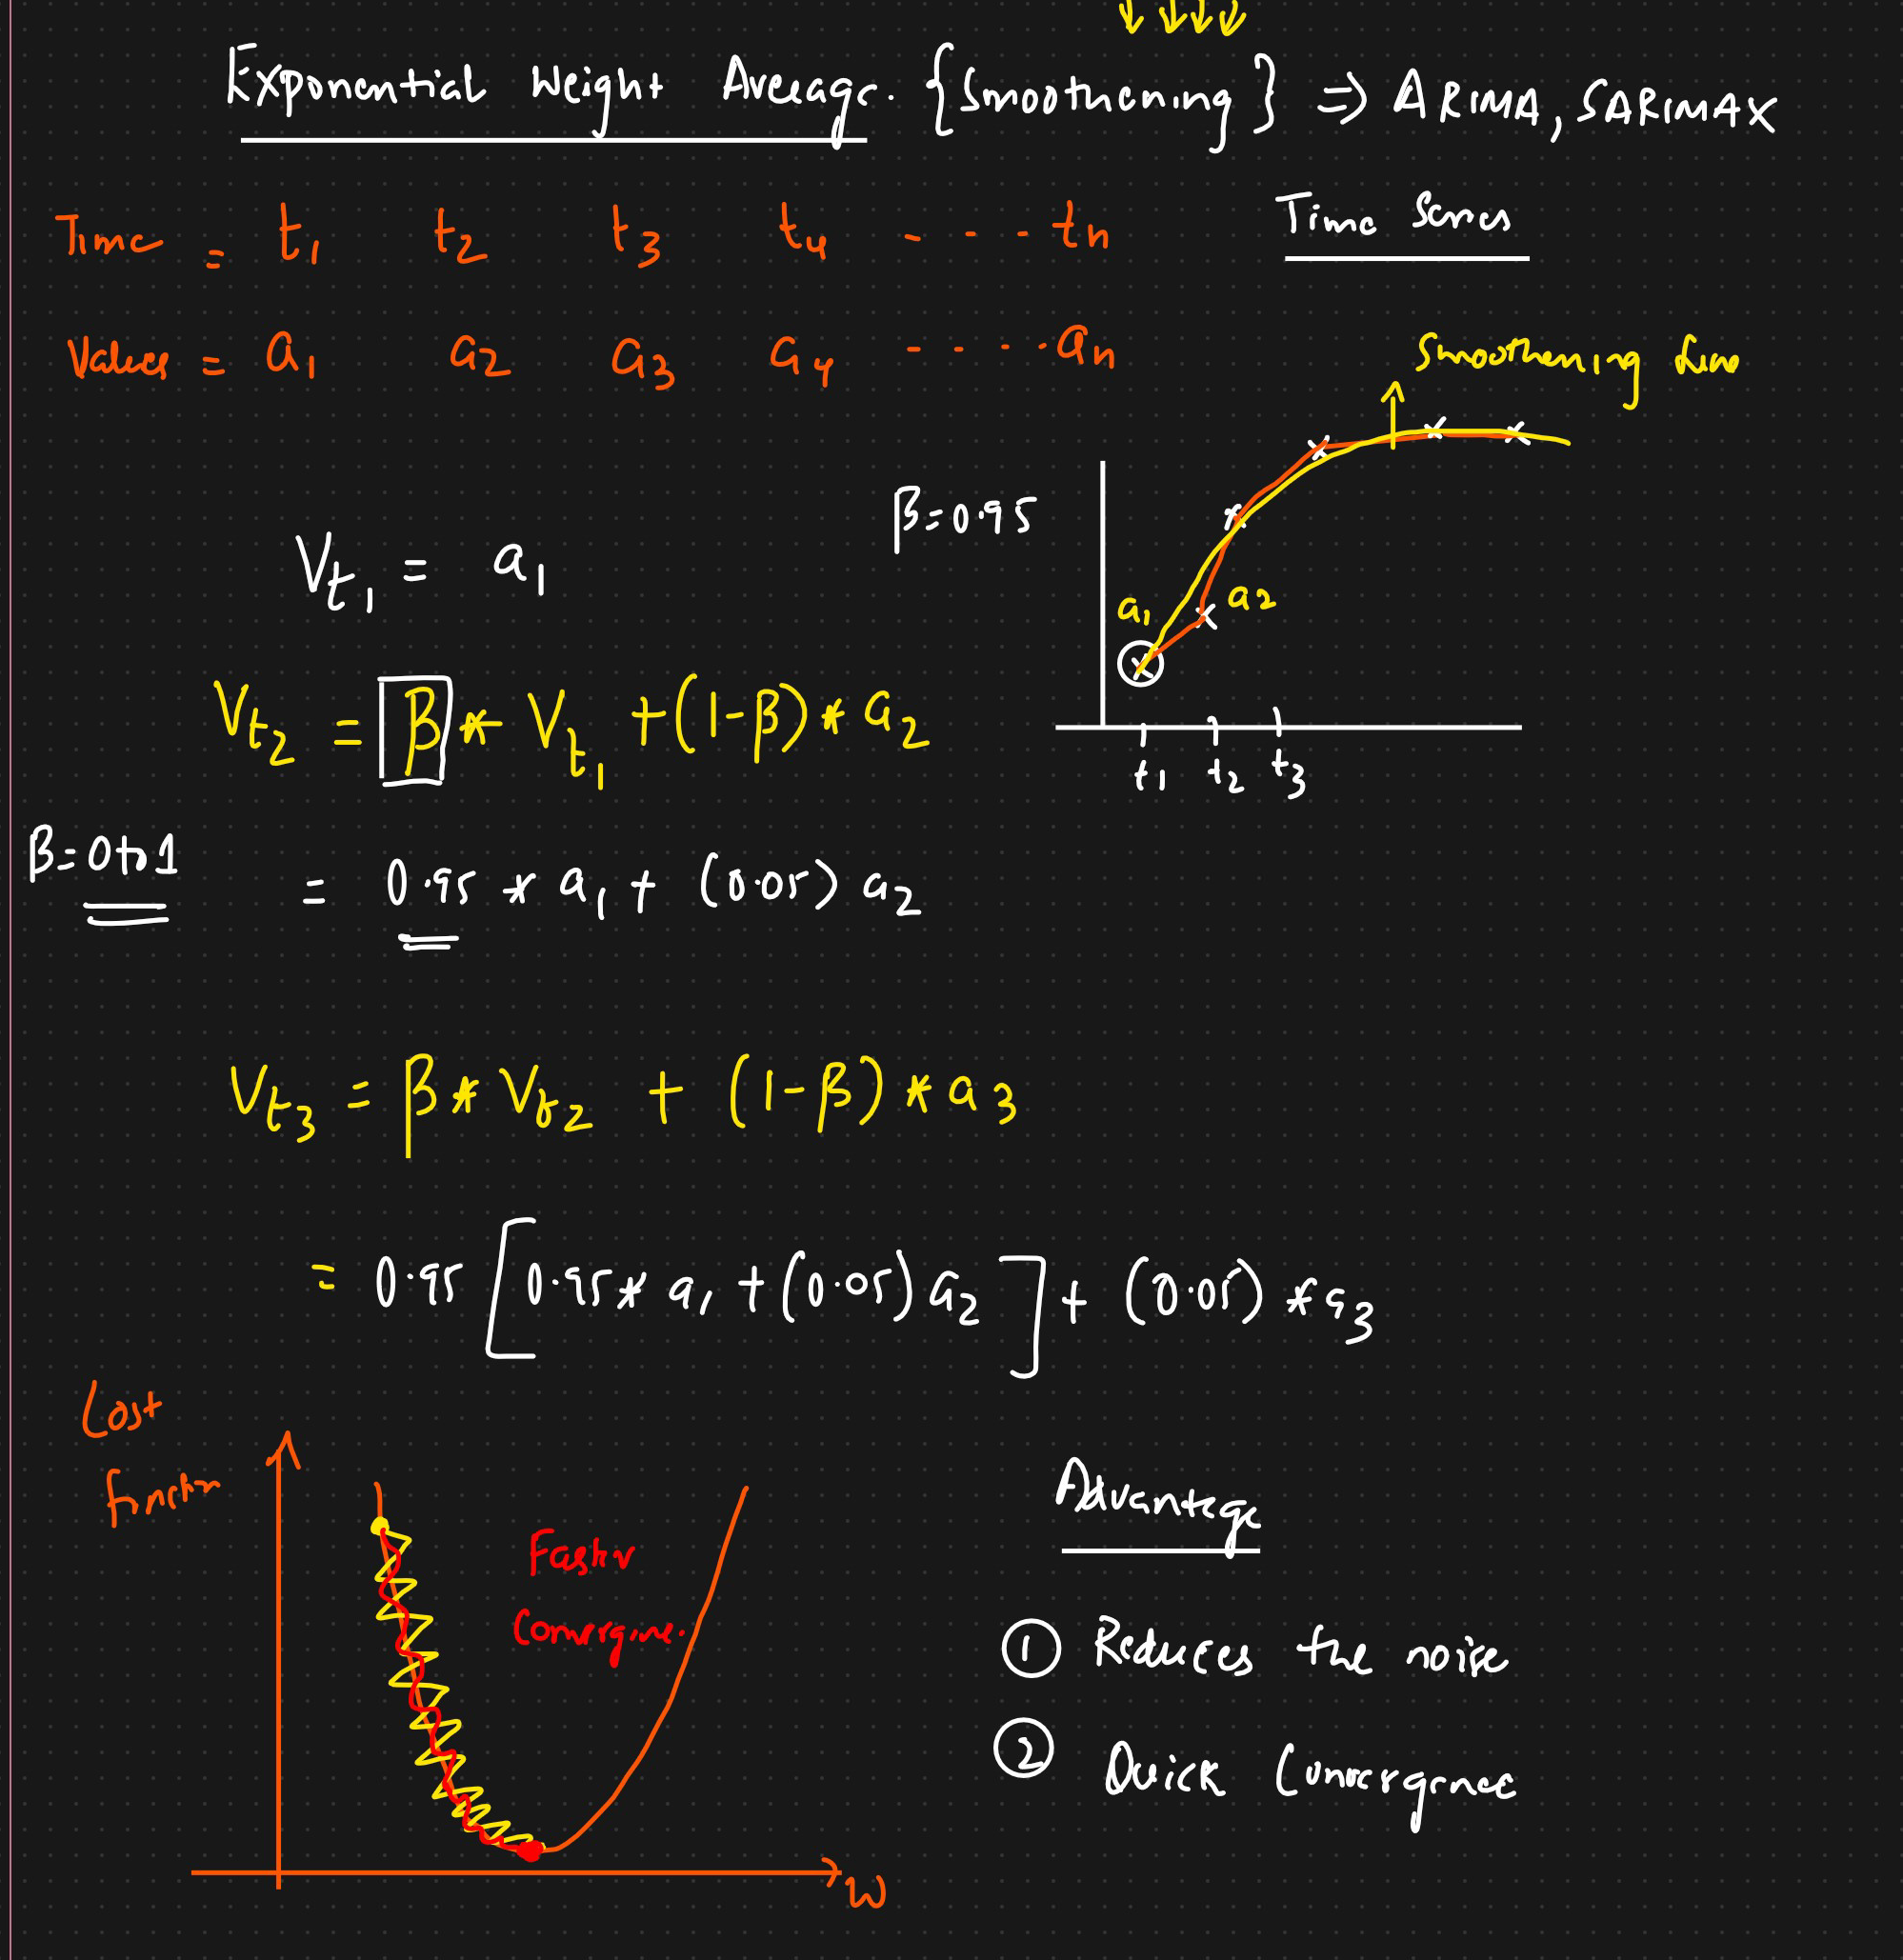 Exponential Weight Average. {Smoothening} => ARIMA, SARIMAX
Time Series
Time = t1 t2 t3 t4 - - - - tn
Values = a1 a2 a3 a4 - - - - - an
Smoothening
β=0.95
a1 a2
t1 t2 t3
Vt1 = a1
Vt2 = β * Vt1 + (1-β) * a2
β=0 to 1
= 0.95 * a1 + (0.05) a2
Vt3 = β * Vt2 + (1-β) * a3
= 0.95 [0.95 * a1 + (0.05) a2] + (0.05) * a3
Cost
function
Faster
Convergence.
w
Advantage
① Reduces the noise
② Quick Convergence